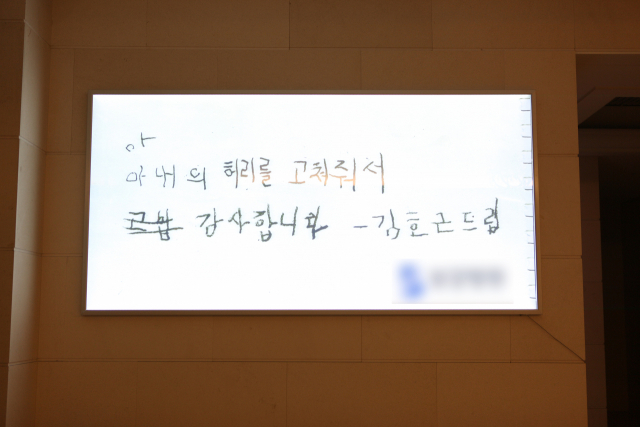 아
아내의 허리를 고쳐줘서
고맙 감사합니다 -김호근드림